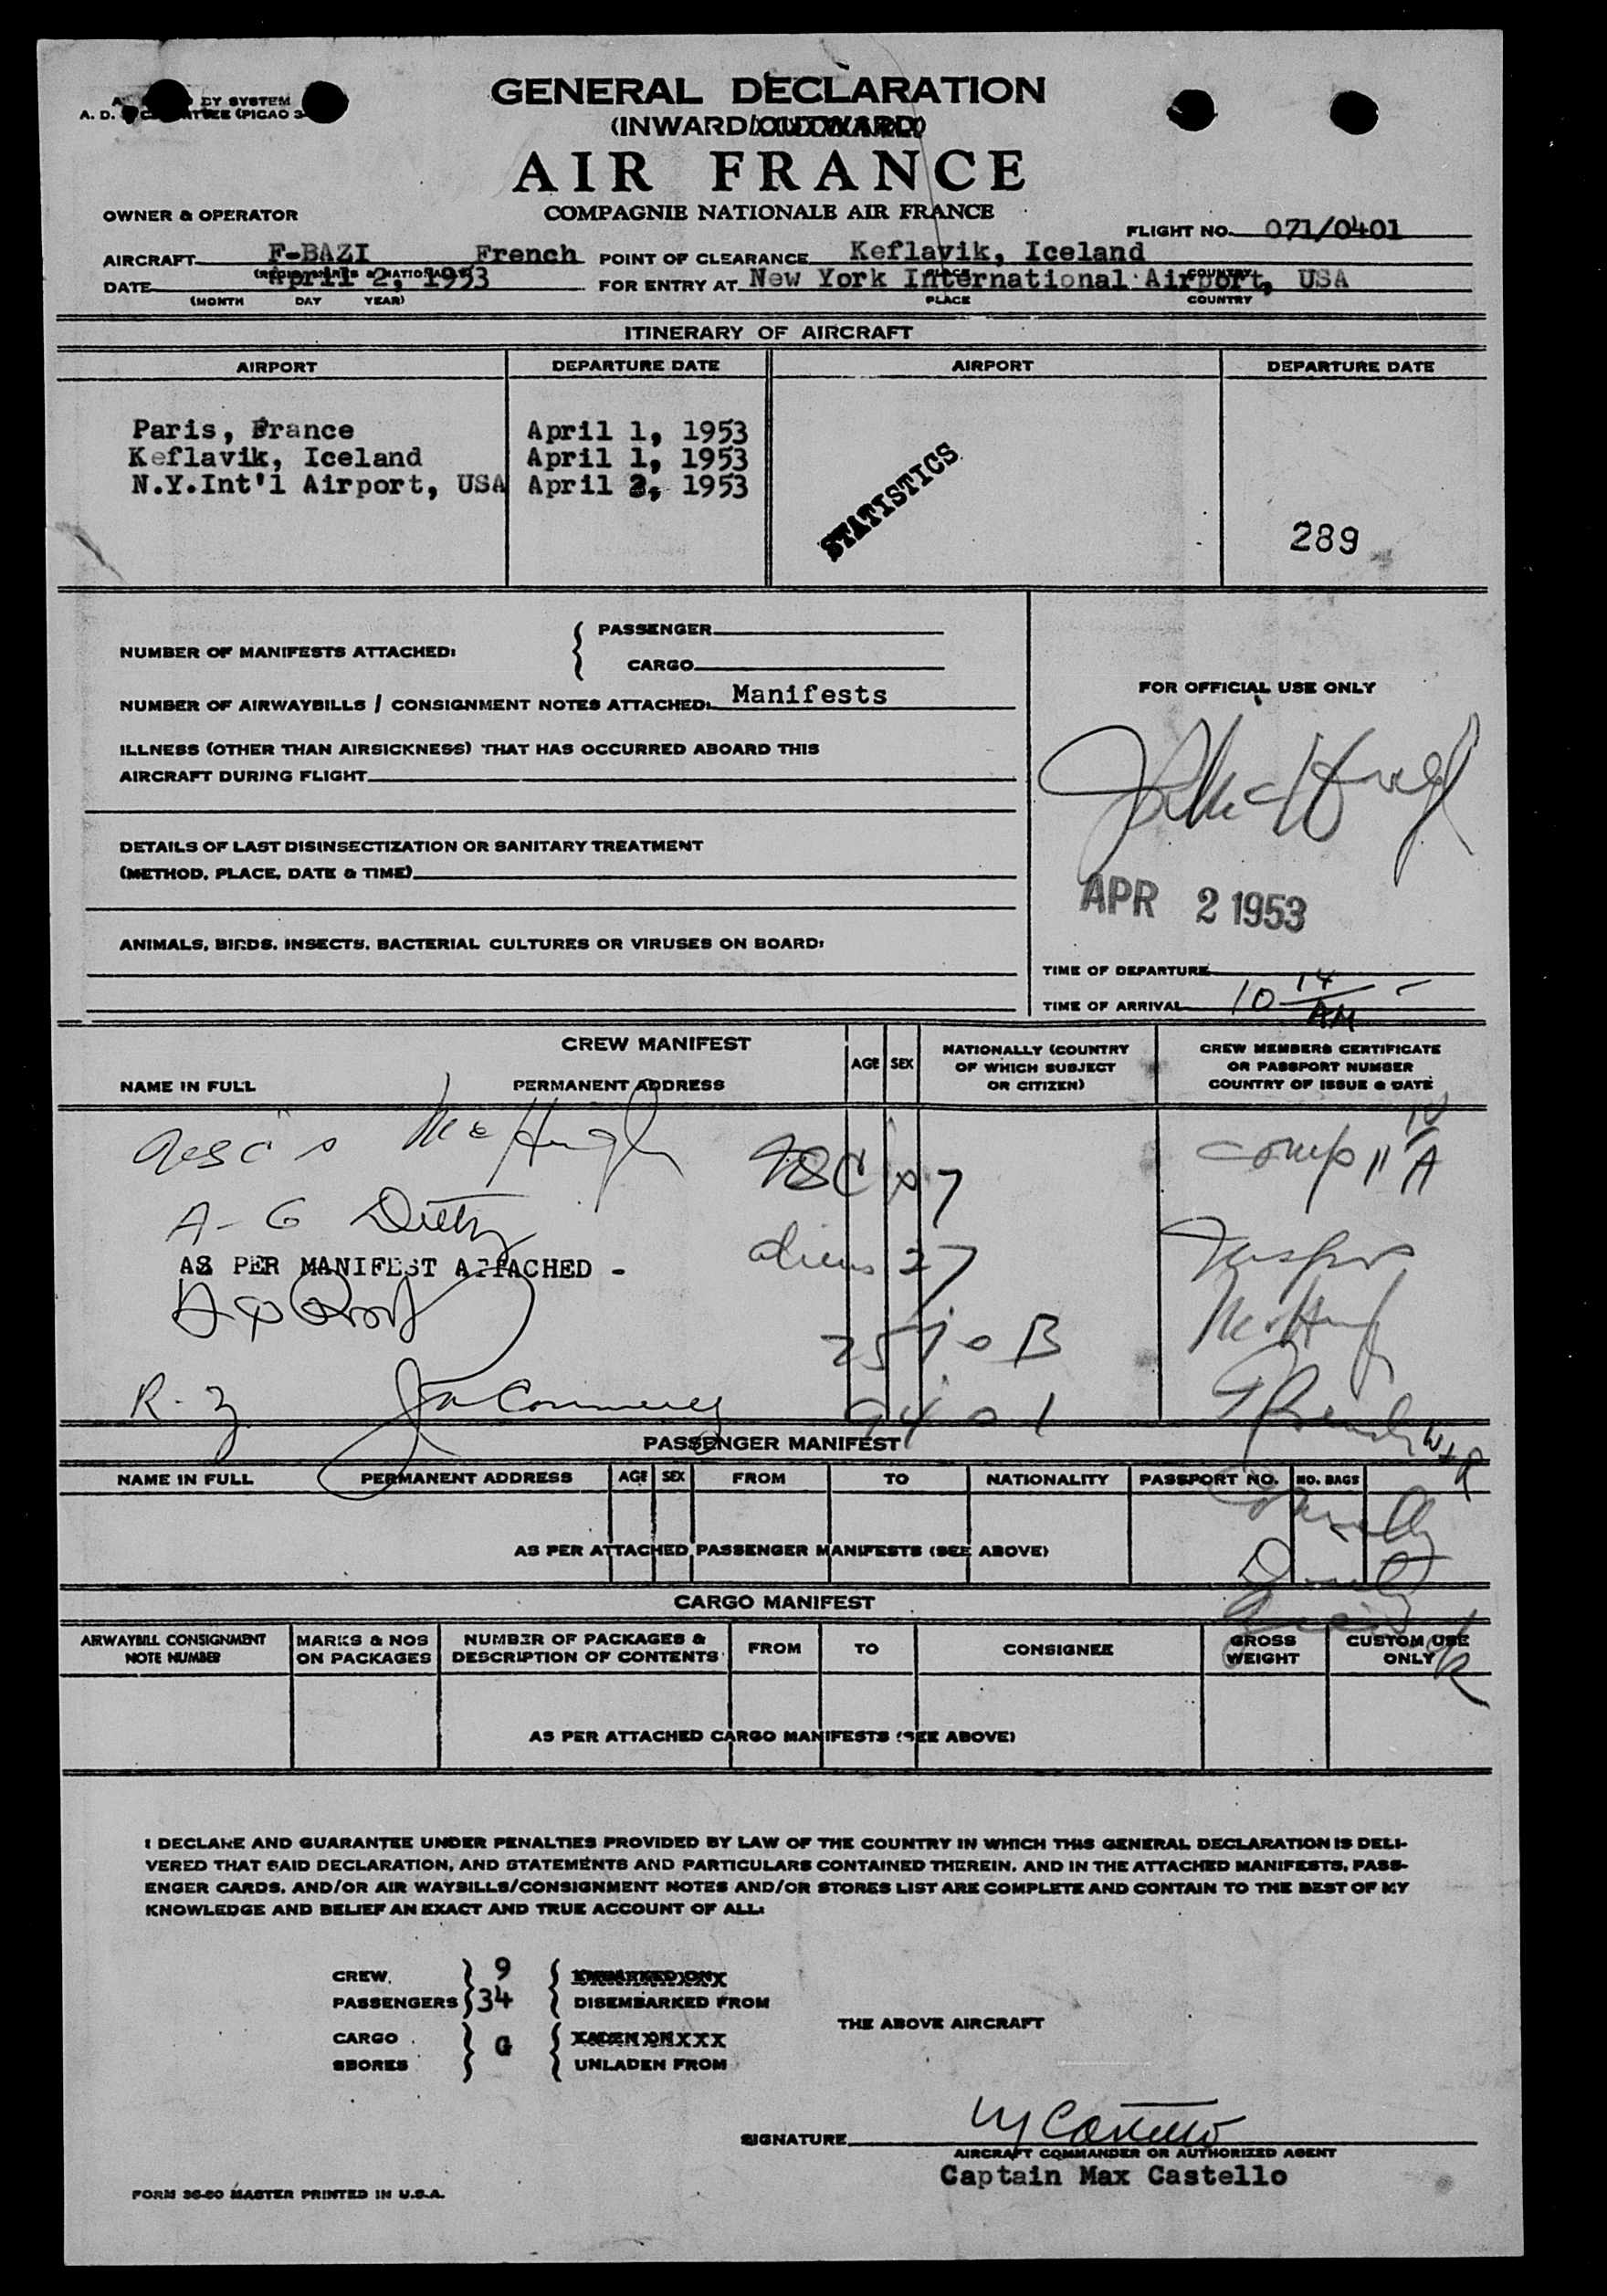 GENERAL DECLARATION
(INWARD/OUTWARD)
AIR FRANCE
COMPAGNIE NATIONALE AIR FRANCE
OWNER & OPERATOR
FLIGHT NO. 071/0401
AIRCRAFT F-BAZI French POINT OF CLEARANCE Keflavik, Iceland
DATE April 2, 1953 FOR ENTRY AT New York International Airport, USA
(MONTH DAY YEAR) PLACE COUNTRY
ITINERARY OF AIRCRAFT
AIRPORT DEPARTURE DATE AIRPORT DEPARTURE DATE
Paris, France April 1, 1953
Keflavik, Iceland April 1, 1953
N.Y.Int'l Airport, USA April 2, 1953
STATISTICS
289
NUMBER OF MANIFESTS ATTACHED: PASSENGER
CARGO
NUMBER OF AIRWAYBILLS / CONSIGNMENT NOTES ATTACHED: Manifests
FOR OFFICIAL USE ONLY
ILLNESS (OTHER THAN AIRSICKNESS) THAT HAS OCCURRED ABOARD THIS
AIRCRAFT DURING FLIGHT
DETAILS OF LAST DISINSECTIZATION OR SANITARY TREATMENT
(METHOD, PLACE, DATE & TIME)
APR 2 1953
ANIMALS, BIRDS, INSECTS, BACTERIAL CULTURES OR VIRUSES ON BOARD:
TIME OF DEPARTURE
TIME OF ARRIVAL 10 14 AM
CREW MANIFEST
NAME IN FULL PERMANENT ADDRESS AGE SEX NATIONALLY (COUNTRY OF WHICH SUBJECT OR CITIZEN) CREW MEMBERS CERTIFICATE OR PASSPORT NUMBER COUNTRY OF ISSUE & DATE
McHugh
USC 07
comp
A-G Dietz
AS PER MANIFEST ATTACHED -
aliens 27
McHugh
R-3
PASSENGER MANIFEST
NAME IN FULL PERMANENT ADDRESS AGE SEX FROM TO NATIONALITY PASSPORT NO. NO. BAGS
AS PER ATTACHED PASSENGER MANIFESTS (SEE ABOVE)
CARGO MANIFEST
AIRWAYBILL CONSIGNMENT NOTE NUMBER MARKS & NOS ON PACKAGES NUMBER OF PACKAGES & DESCRIPTION OF CONTENTS FROM TO CONSIGNEE GROSS WEIGHT CUSTOM USE ONLY
AS PER ATTACHED CARGO MANIFESTS (SEE ABOVE)
I DECLARE AND GUARANTEE UNDER PENALTIES PROVIDED BY LAW OF THE COUNTRY IN WHICH THIS GENERAL DECLARATION IS DELI-
VERED THAT SAID DECLARATION, AND STATEMENTS AND PARTICULARS CONTAINED THEREIN, AND IN THE ATTACHED MANIFESTS, PASS-
ENGER CARDS, AND/OR AIR WAYBILLS/CONSIGNMENT NOTES AND/OR STORES LIST ARE COMPLETE AND CONTAIN TO THE BEST OF MY
KNOWLEDGE AND BELIEF AN EXACT AND TRUE ACCOUNT OF ALL:
CREW 9 EMBARKED ON
PASSENGERS 34 DISEMBARKED FROM
THE ABOVE AIRCRAFT
CARGO G LADEN ON
SBORES UNLADEN FROM
SIGNATURE M Castello
AIRCRAFT COMMANDER OR AUTHORIZED AGENT
Captain Max Castello
FORM 36-60 MASTER PRINTED IN U.S.A.